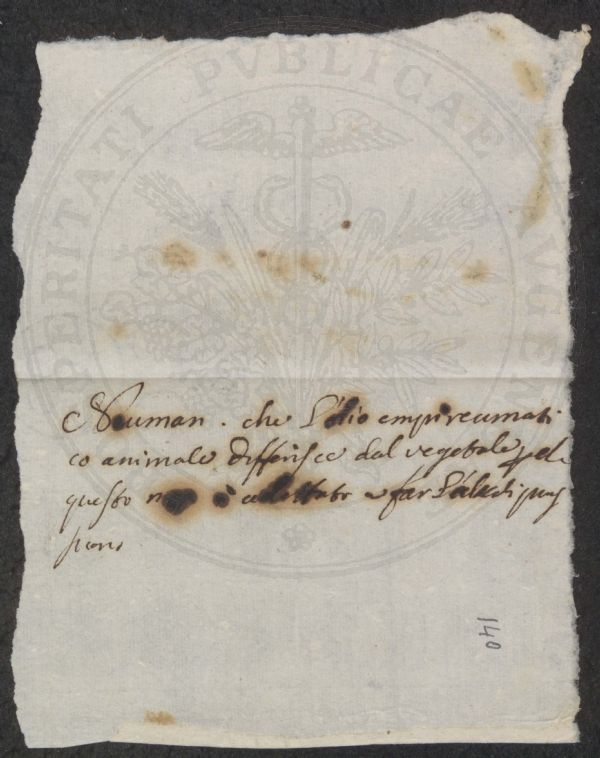 PERITATI PVBLICAE AVGEN
Neuman. che l'olio empireumati
co animale differisce dal vegetale
questo non è adattato a far
140